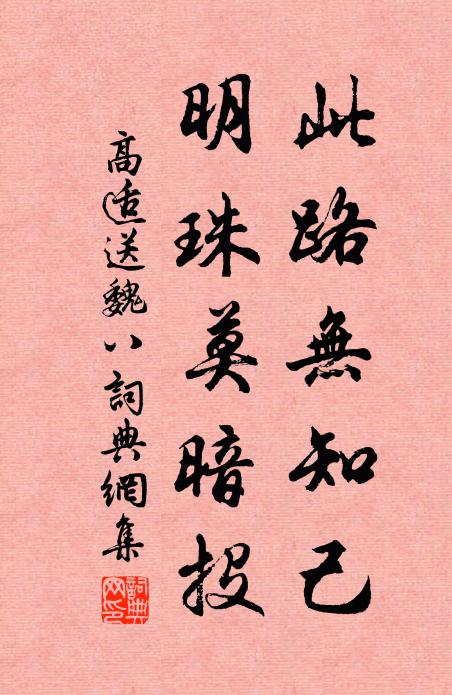 此路無知己
明珠莫暗投
高适送魏八詞典網集
詞典
网印